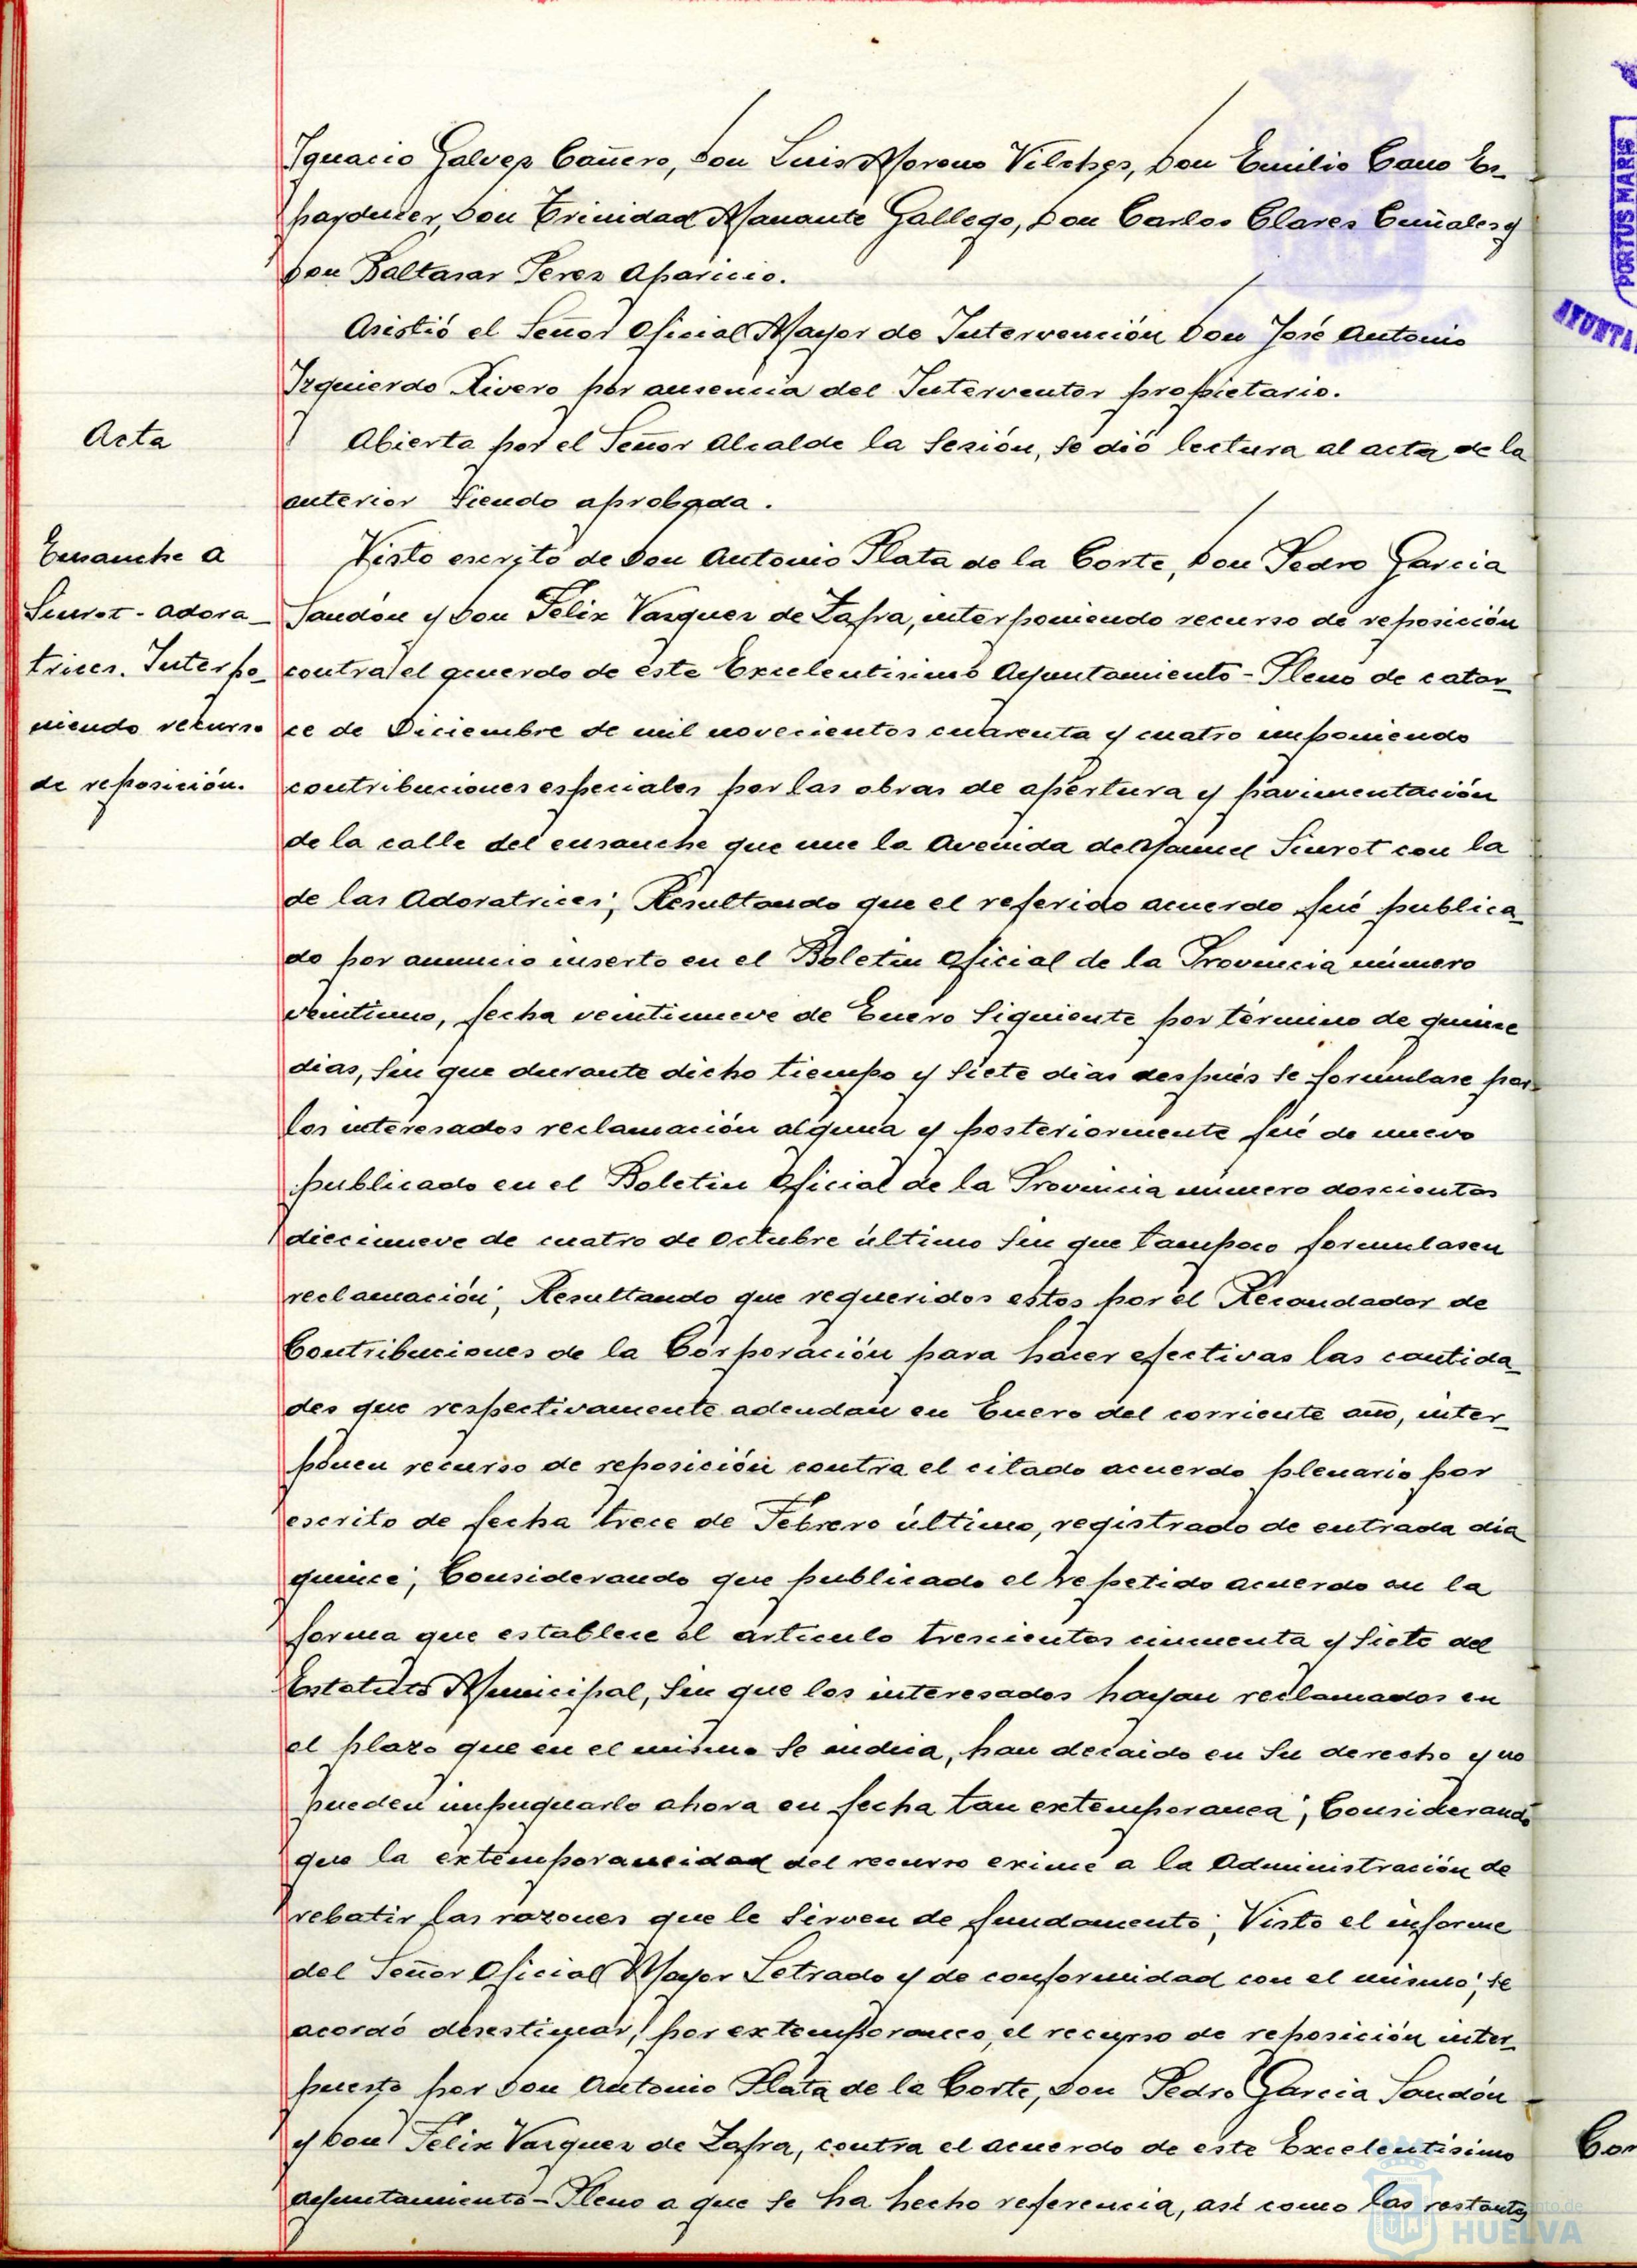 Ignacio Galvez Cañero, Don Luis Moreno Vilches, Don Emilio Cano Es-
Don Trinidad Manante Gallego, Don Carlos Clares Cuñales y
Don Baltasar Perez Aparicio.
Asistió el Señor Oficial Mayor de Intervención Don José Antonio
Izquierdo Rivero por ausencia del Interventor propietario.
Acta
Abierta por el Señor Alcalde la Sesión, se dió lectura al acta de la
anterior siendo aprobada.
Ensanche a
Siurot - adora-
trices. Interpo-
niendo recurso
de reposición.
Visto escrito de Don Antonio Plata de la Corte, Don Pedro Garcia
Sandón y Don Felix Vazquez de Zafra, interponiendo recurso de reposición
contra el acuerdo de éste Excelentisimo Ayuntamiento - Pleno de cator-
ce de Diciembre de mil novecientos cuarenta y cuatro imponiendo
contribuciones especiales por las obras de apertura y pavimentación
de la calle del ensanche que une la Avenida de Manuel Siurot con la
de las Adoratrices; Resultando que el referido acuerdo fué publica-
do por anuncio inserto en el Boletin Oficial de la Provincia número
veintiuno, fecha veintinueve de Enero siguiente por término de quince
dias, sin que durante dicho tiempo y siete dias después se formulase por
los interesados reclamación alguna y posteriormente fué de nuevo
publicado en el Boletin Oficial de la Provincia número doscientos
diecinueve de cuatro de Octubre último sin que tampoco formulasen
reclamación; Resultando que requeridos estos por el Recaudador de
Contribuciones de la Corporación para hacer efectivas las cantida-
des que respectivamente adeudan en Enero del corriente año, inter-
ponen recurso de reposición contra el citado acuerdo plenario por
escrito de fecha trece de Febrero último, registrado de entrada dia
quince; Considerando que publicado el repetido acuerdo en la
forma que establece el articulo trescientos cincuenta y siete del
Estatuto Municipal, sin que los interesados hayan reclamados en
el plazo que en el mismo se indica, han decaido en su derecho y no
pueden impugnarlo ahora en fecha tan extemporanea; Considerando
que la extemporaneidad del recurso exime a la Administración de
rebatir las razones que le sirven de fundamento; Visto el informe
del Señor Oficial Mayor Letrado y de conformidad con el mismo; se
acordó desestimar, por extemporaneo, el recurso de reposición inter-
puesto por Don Antonio Plata de la Corte, Don Pedro Garcia Sandón
y Don Felix Vazquez de Zafra, contra el acuerdo de este Excelentisimo
Ayuntamiento - Pleno a que se ha hecho referencia, asi como las restantes
PORTUS MARIS
HUELVA